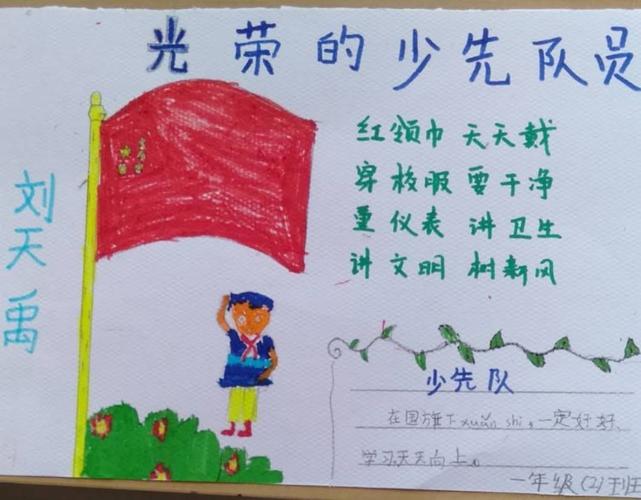 光荣的少先队员
刘天禹
红领巾 天天戴
穿校服 要干净
重仪表 讲卫生
讲文明 树新风
少先队
在国旗下xuān shi,一定好好、
学习天天向上。
一年级(2)班